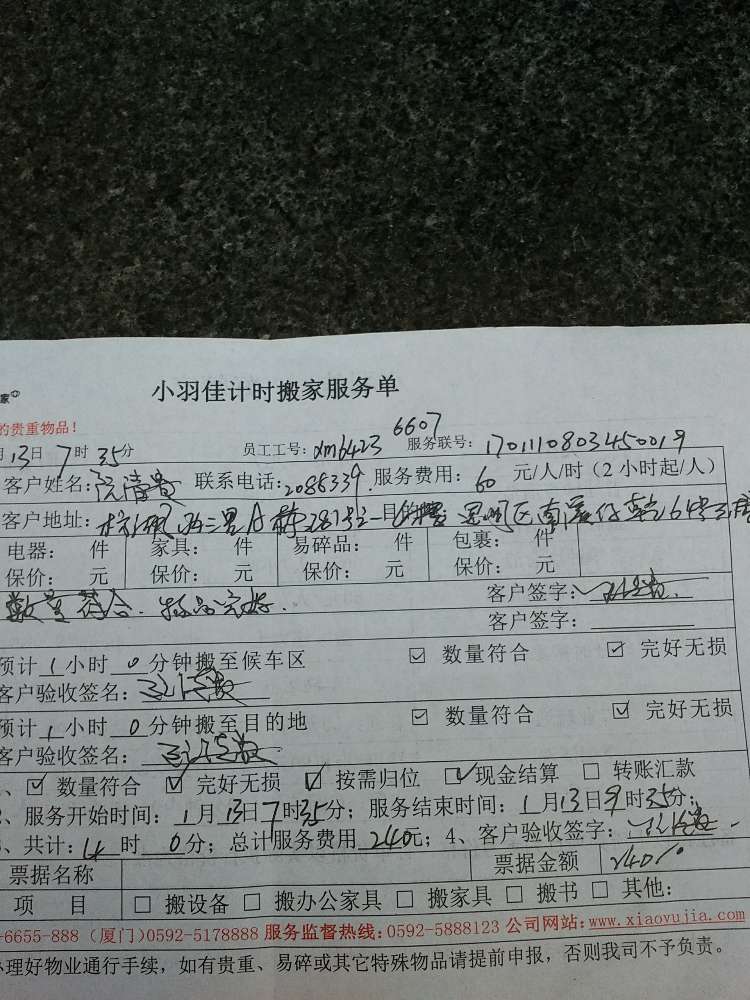 家
小羽佳计时搬家服务单
的贵重物品!
月13日7时35分 员工工号:xm6423 6607 服务联号:1701110803450019
客户姓名: 联系电话:2086339 服务费用:60元/人/时(2小时起/人)
客户地址:
电器: 件 家具: 件 易碎品: 件 包裹: 件
保价: 元 保价: 元 保价: 元 保价: 元
数量符合.物品完好. 客户签字:
客户签字:
预计1小时0分钟搬至候车区 ☑ 数量符合 ☑ 完好无损
客户验收签名:
预计1小时0分钟搬至目的地 ☑ 数量符合 ☑ 完好无损
客户验收签名:
、☑ 数量符合 ☑ 完好无损 ☑ 按需归位 ☑ 现金结算 □ 转账汇款
、服务开始时间:1月13日7时35分;服务结束时间:1月13日9时35分;
、共计:4时0分;总计服务费用240元;4、客户验收签字:
票据名称 票据金额 240%
项 目 □ 搬设备 □ 搬办公家具 □ 搬家具 □ 搬书 □ 其他:
-6655-888(厦门)0592-5178888 服务监督热线:0592-5888123 公司网站:www.xiaoyujia.com
办理好物业通行手续,如有贵重、易碎或其它特殊物品请提前申报,否则我司不予负责。